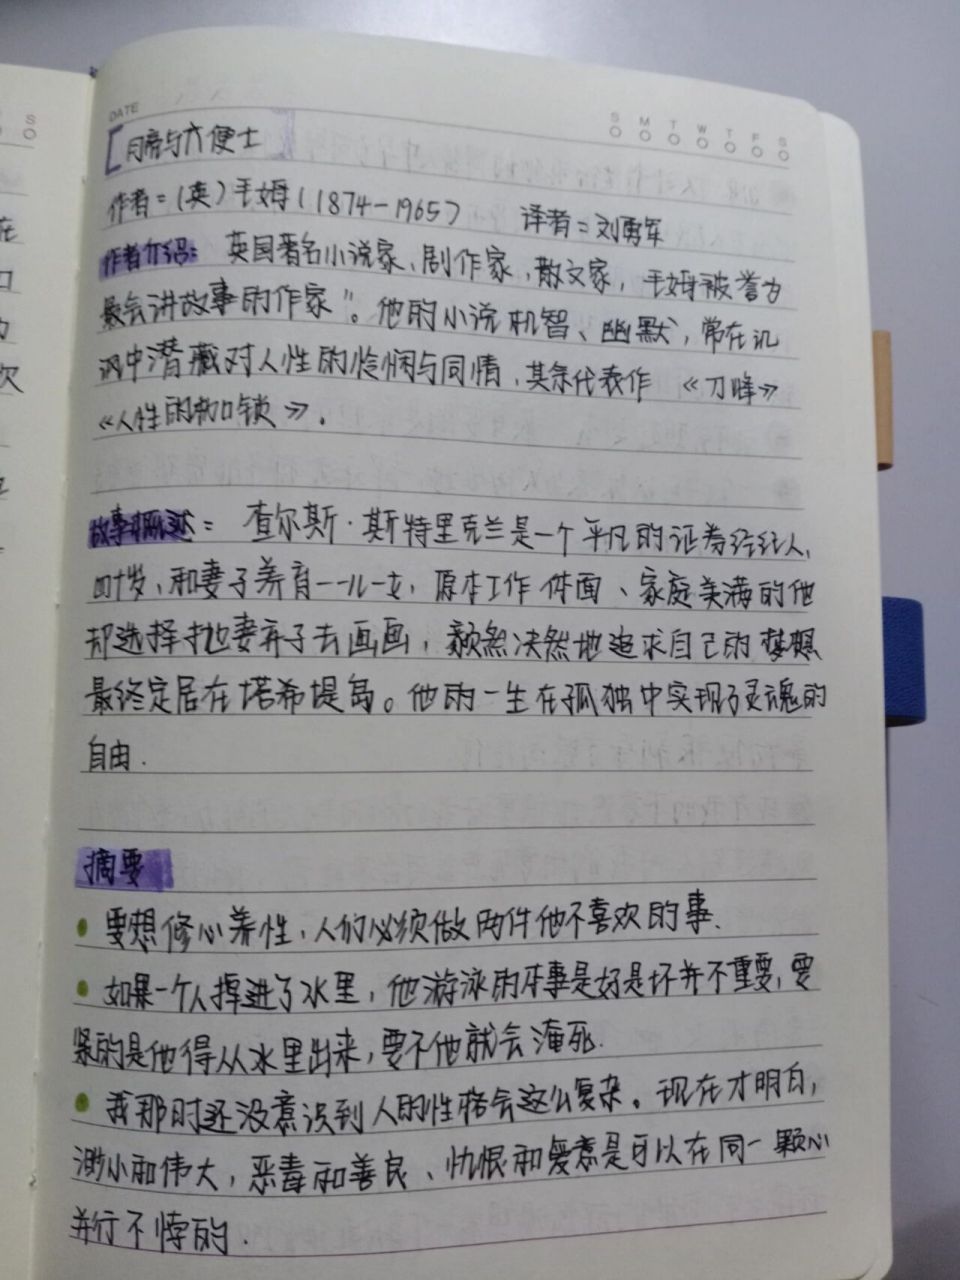 DATE
S M T W T F S
S
月亮与六便士
作者：（英）毛姆（1874-1965） 译者：刘勇军
作者介绍： 英国著名小说家、剧作家，散文家，毛姆被誉为
最会讲故事的作家”。他的小说机智、幽默，常在讥
讽中潜藏对人性的怜悯与同情，其余代表作 《刀锋》
《人性的枷锁》.
故事概述： 查尔斯·斯特里克兰是一个平凡的证券经纪人，
四十岁，和妻子养育一儿一女，原本工作体面、家庭美满的他
却选择抛妻弃子去画画，毅然决然地追求自己的梦想
最终定居在塔希提岛。他的一生在孤独中实现了灵魂的
自由.
摘要
要想修心养性，人们必须做两件他不喜欢的事.
如果一个人掉进了水里，他游泳的本事是好是坏并不重要，要
紧的是他得从水里出来，要不他就会淹死.
我那时还没意识到人的性格会这么复杂。现在才明白，
渺小和伟大，恶毒和善良、仇恨和爱意是可以在同一颗心
并行不悖的.